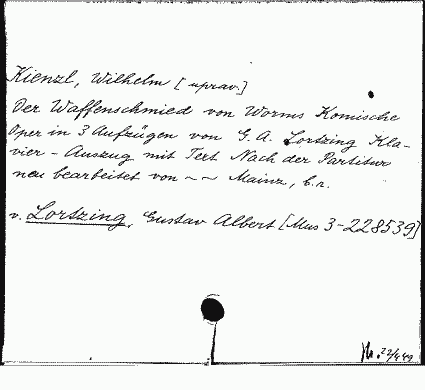 Kienzl, Wilhelm [uprav.]
Der Waffenschmied von Worms Komische
Oper in 3 Aufzügen von G. A. Lortzing Kla-
vier - Auszug mit Text Nach der Partitur
neu bearbeitet von ~ ~ Mainz, b.r.
v. Lortzing, Gustav Albert [Mus 3-228539]